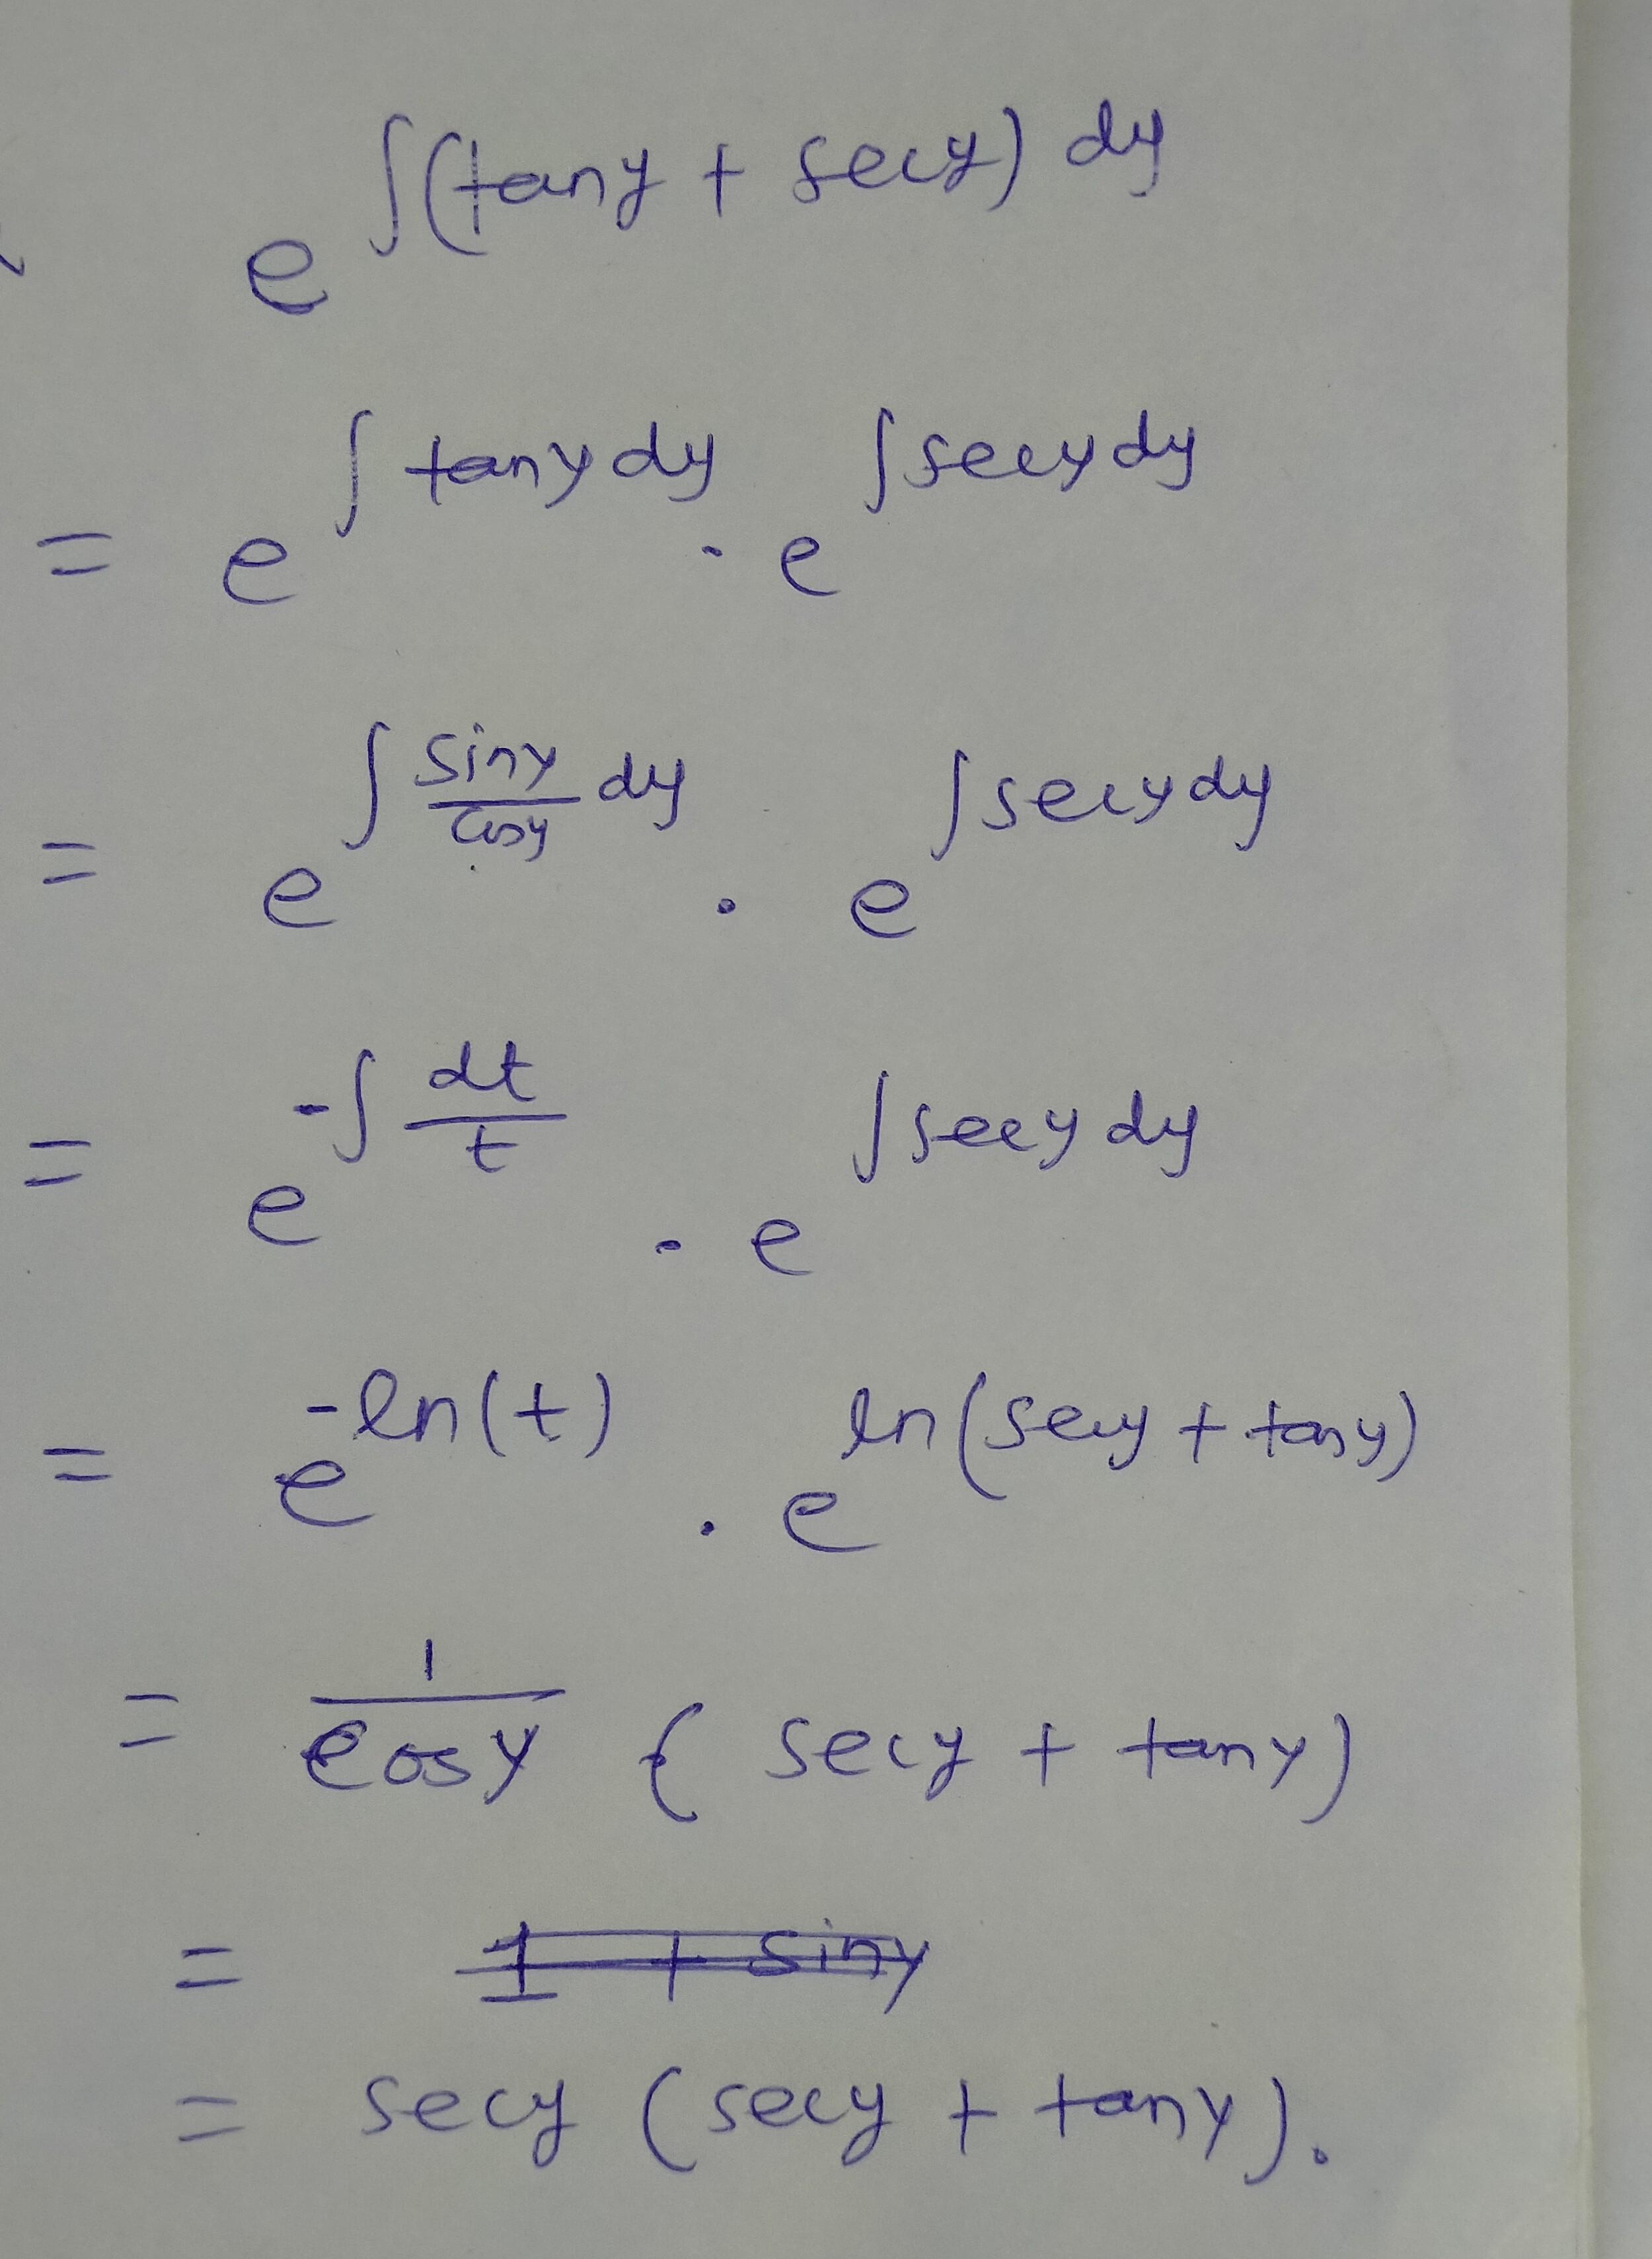 e^∫(tany + secy) dy
= e^∫tany dy · e^∫secy dy
= e^∫(siny/cosy) dy · e^∫secy dy
= e^-∫dt/t · e^∫secy dy
= e^-ln(t) · e^ln(secy + tany)
= 1/cosy (secy + tany)
= 1 + siny
= secy (secy + tany).